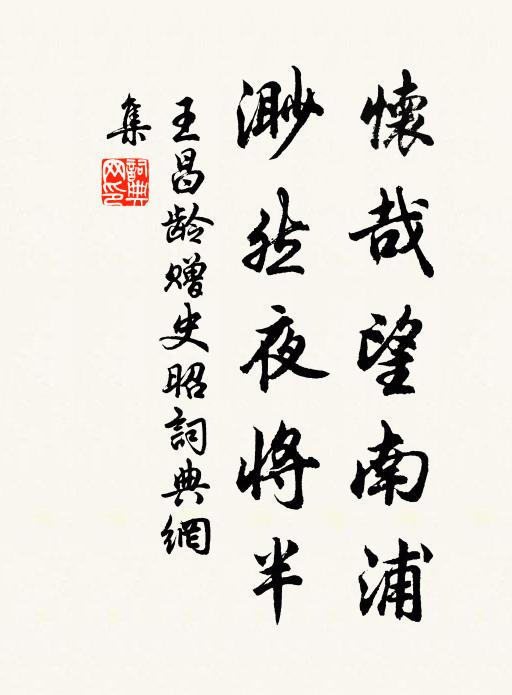 懷哉望南浦
渺然夜將半
王昌齡贈史昭詞典網
集
詞典网印